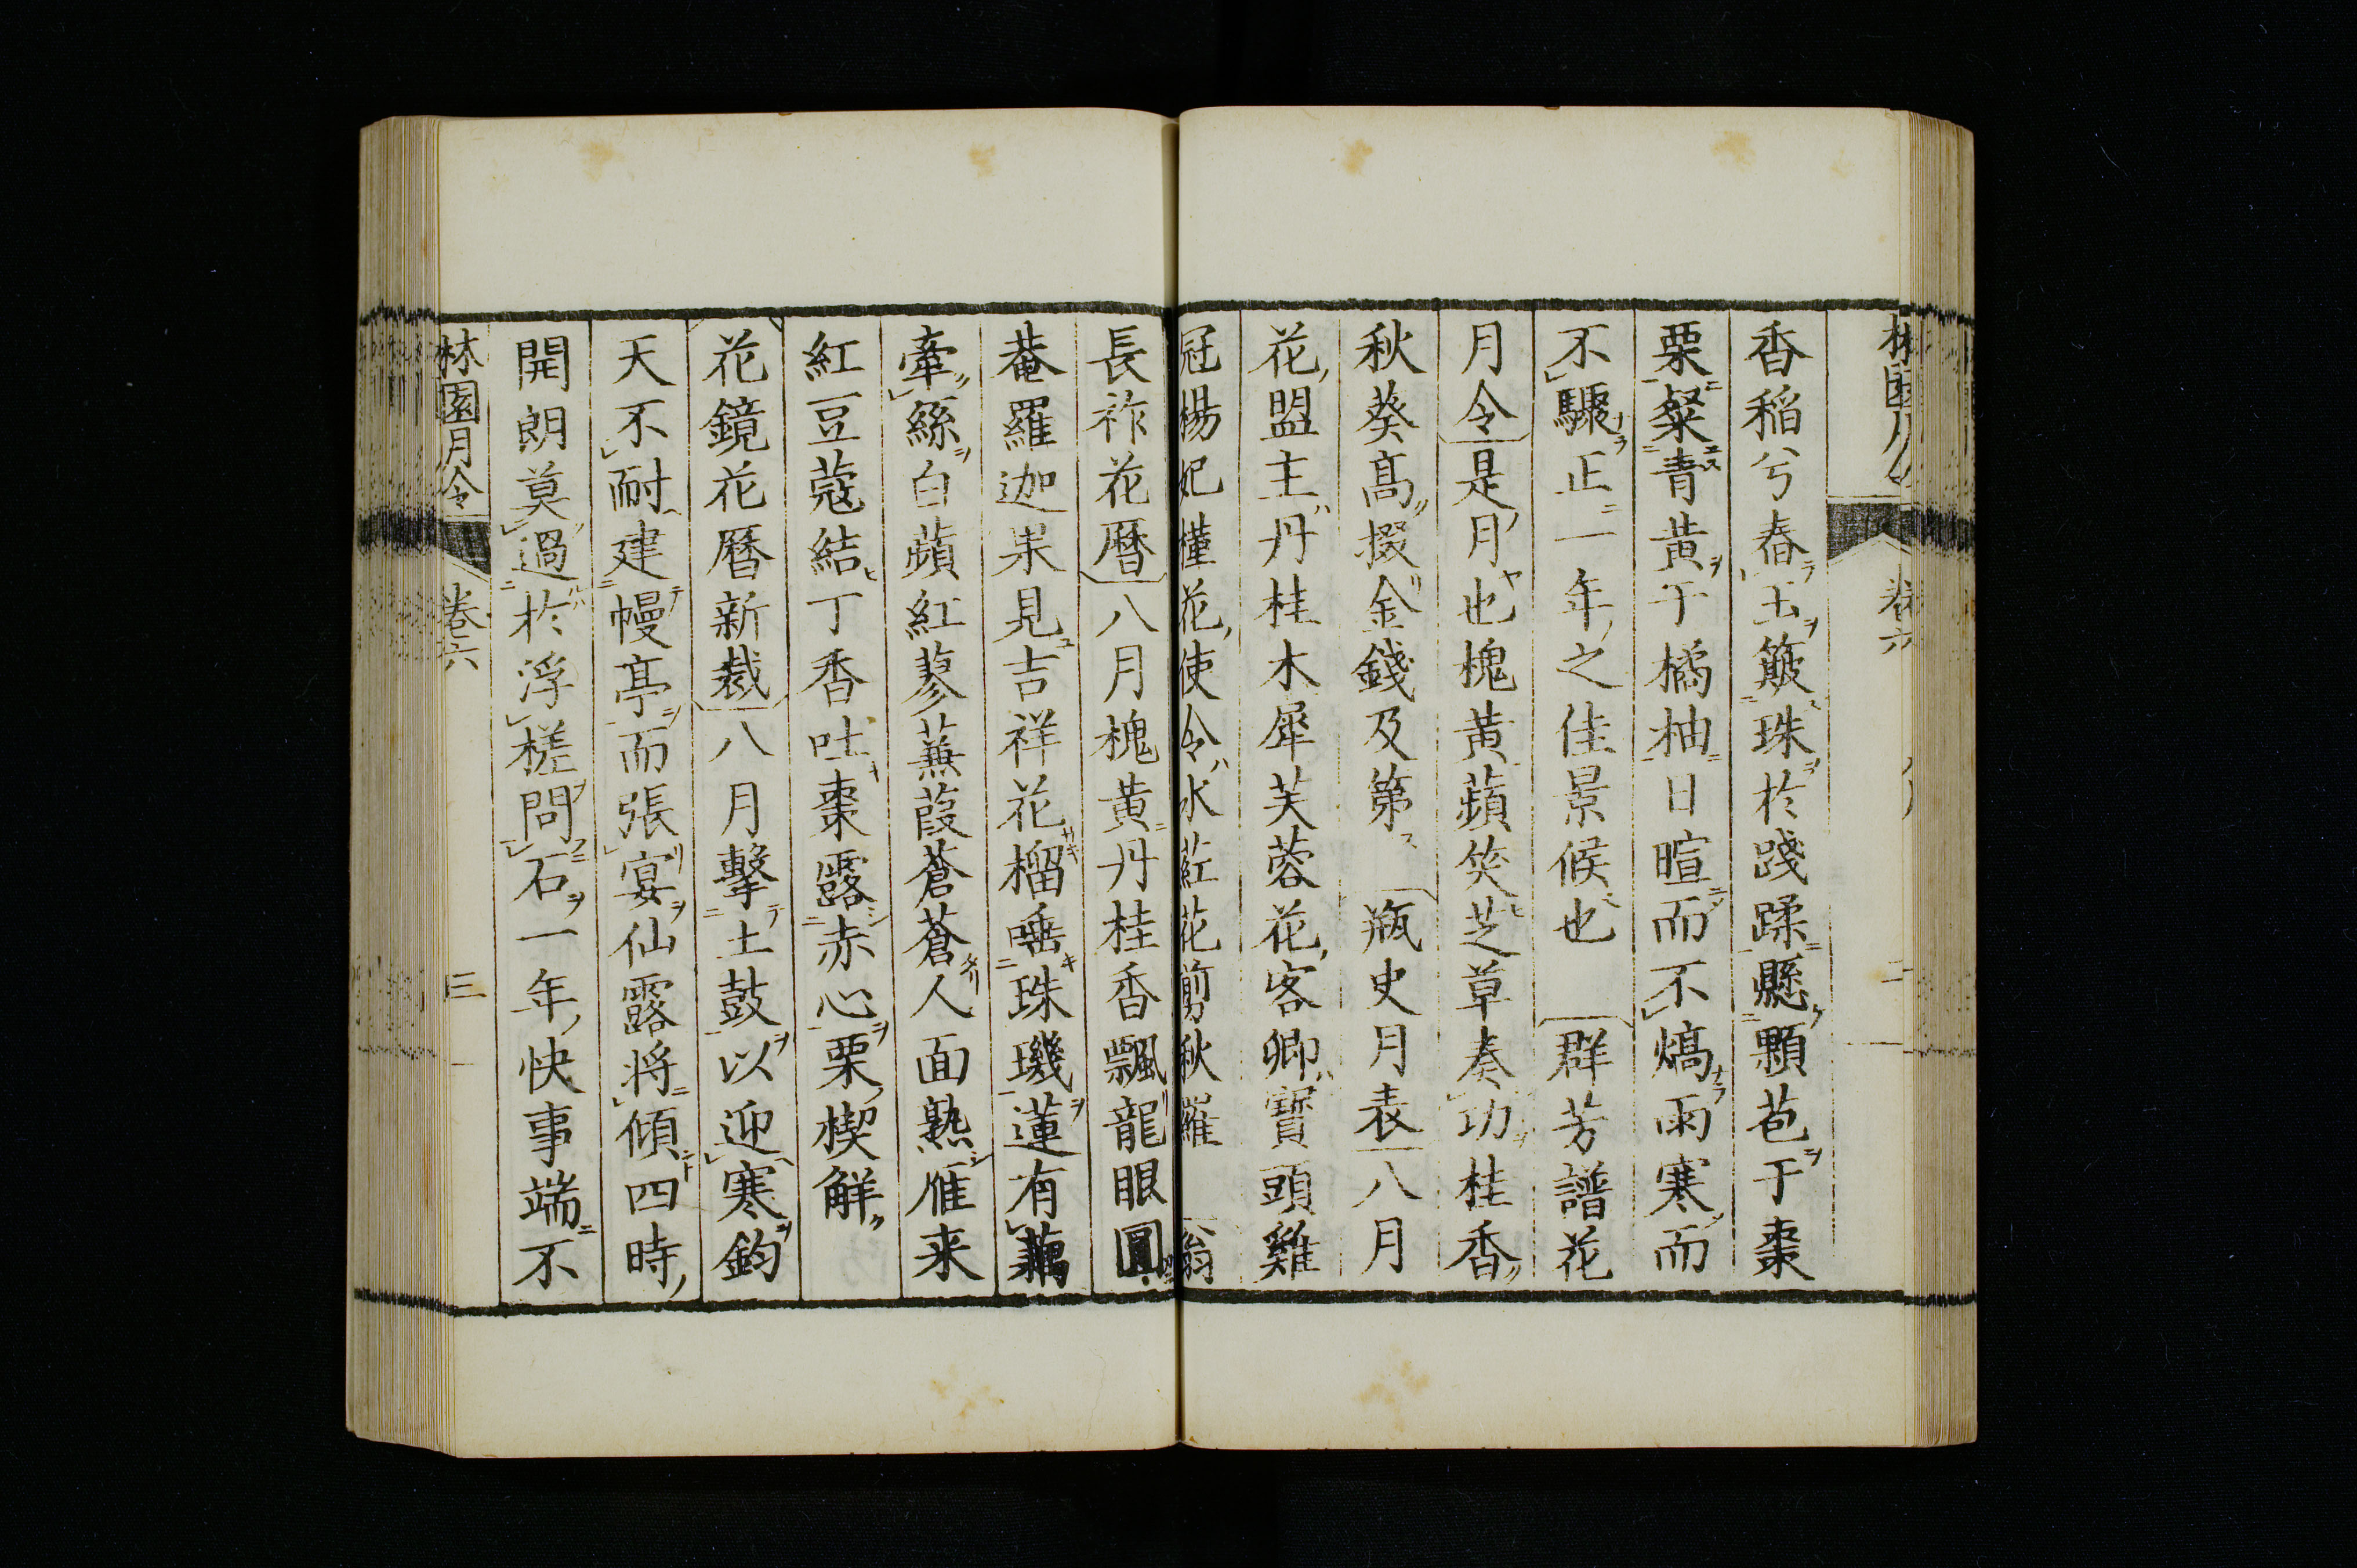 香稲兮舂玉簸珠於踐蹂懸顆苞于棗
栗粲青黄于橘柚日暄而不熇雨寒而
不驟正一年之佳景候也 群芳譜花
月令是月也槐黄蘋笑芝草奏功桂香
秋葵髙掇金錢及第 瓶史月表八月
花盟主丹桂木犀芙蓉花客卿寳頭雞
冠楊妃槿花使令水葒花剪秋羅 翁
長祚花暦八月槐黄丹桂香飄龍眼圓
菴羅迦果見吉祥花榴唾珠璣蓮有藕
牽絲白蘋紅蓼蒹葭蒼蒼人面熟雁来
紅豆蔻結丁香吐棗露赤心栗楔解
花鏡花暦新裁八月擊土鼓以迎寒鈞
天不耐建幔亭而張宴仙露将傾四時
開朗莫過於浮槎問石一年快事端不
林園月令 卷六 三